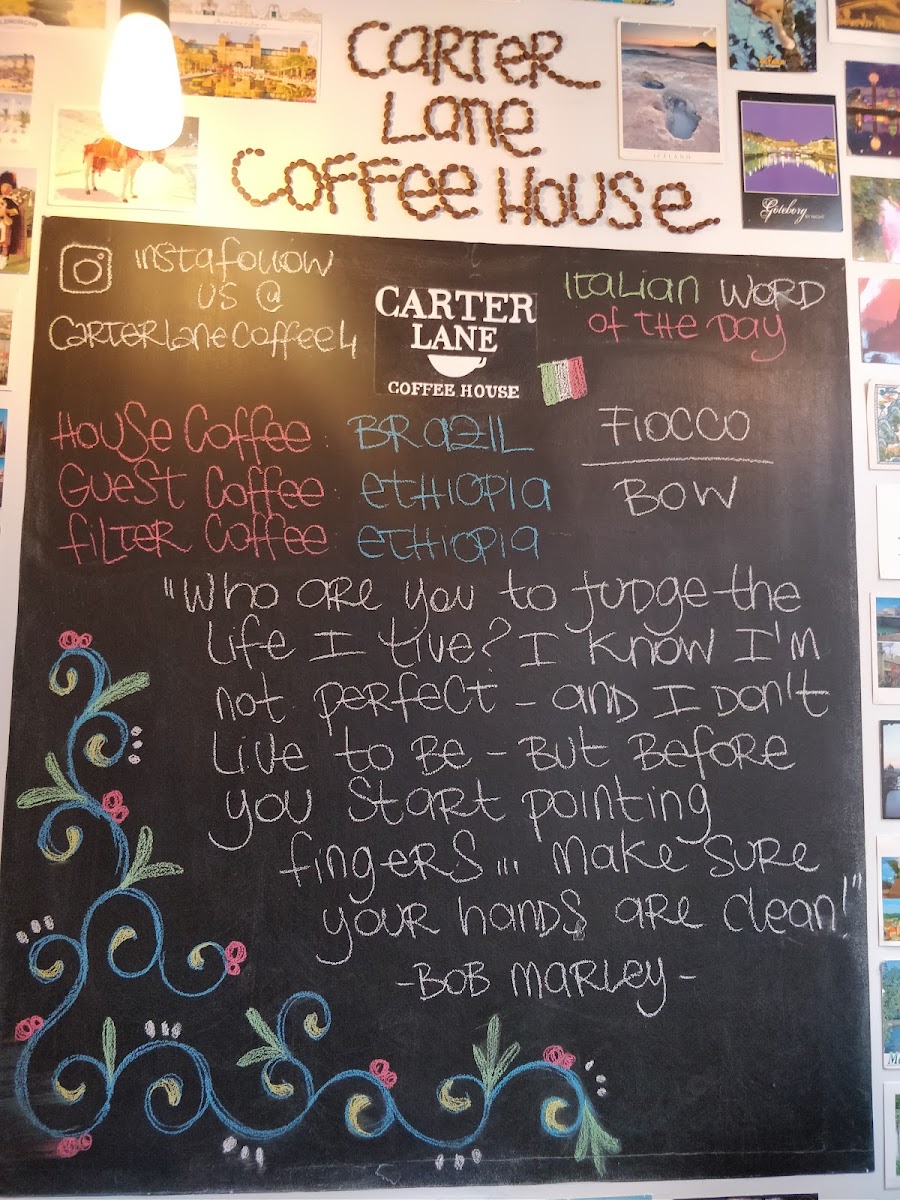 Carter
Lane
Coffee House
ICELAND
Göteborg
BY NIGHT
Instafollow
us @
Carterlanecoffee4
CARTER
LANE
COFFEE HOUSE
Italian Word
of the Day
House Coffee: Brazil
Guest Coffee: Ethiopia
Filter Coffee: Ethiopia
Fiocco
Bow
"Who are you to judge the
life I live? I know I'm
not perfect - and I don't
live to be - but before
you start pointing
fingers... make sure
your hands are clean!"
- Bob Marley -